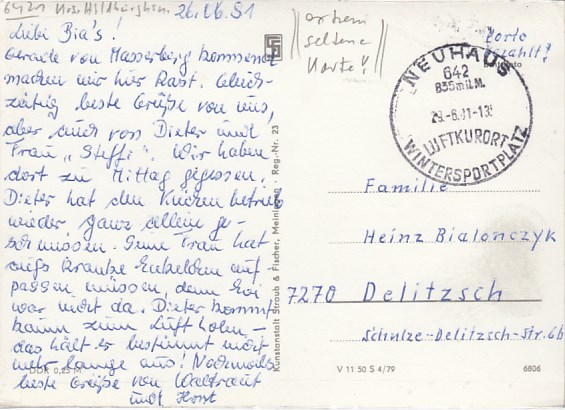 6421 26.06.91
Liebe Bia's!
Gerade von Masserberg kommend
machen wir hier Rast. Gleich-
zeitig beste Grüße von uns,
aber auch von Dieter und
Frau "Steffi". Wir haben
dort zu Mittag gegessen.
Dieter hat den Küchenbetrieb
wieder ganz allein ge-
schmissen. Seine Frau hat
aufs kranke Enkelchen auf-
passen müssen, denn Evi
war nicht da. Dieter kommt
kaum zum Luft holen –
das hält er bestimmt nicht
mehr lange aus! Nochmals
beste Grüße von Waltraut
und Horst
DDR 0,25 M
Kunstanstalt Straub & Fischer, Meiningen · Reg.-Nr. 23
extrem
seltene
Karte!
Porto
bezahlt!
NEUHAUS
642
835m ü.M.
29.-6.91-13
LUFTKURORT
WINTERSPORTPLATZ
Familie
Heinz Bialonczyk
7270 Delitzsch
Schulze-Delitzsch-Str. 66
V 11 50 S 4/79 6806